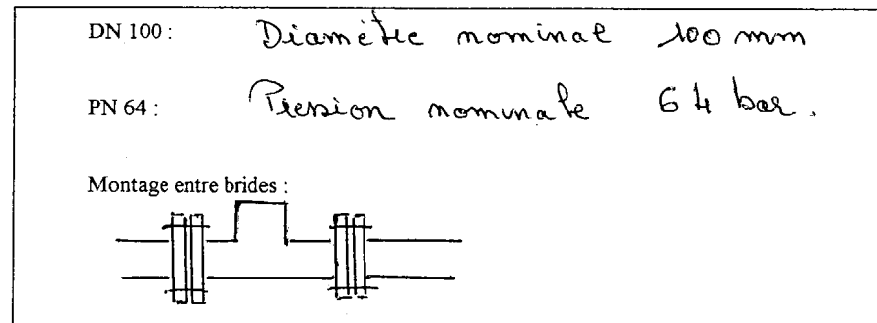 DN 100 : Diamètre nominal 100 mm
PN 64 : Pression nominale 64 bar.
Montage entre brides :